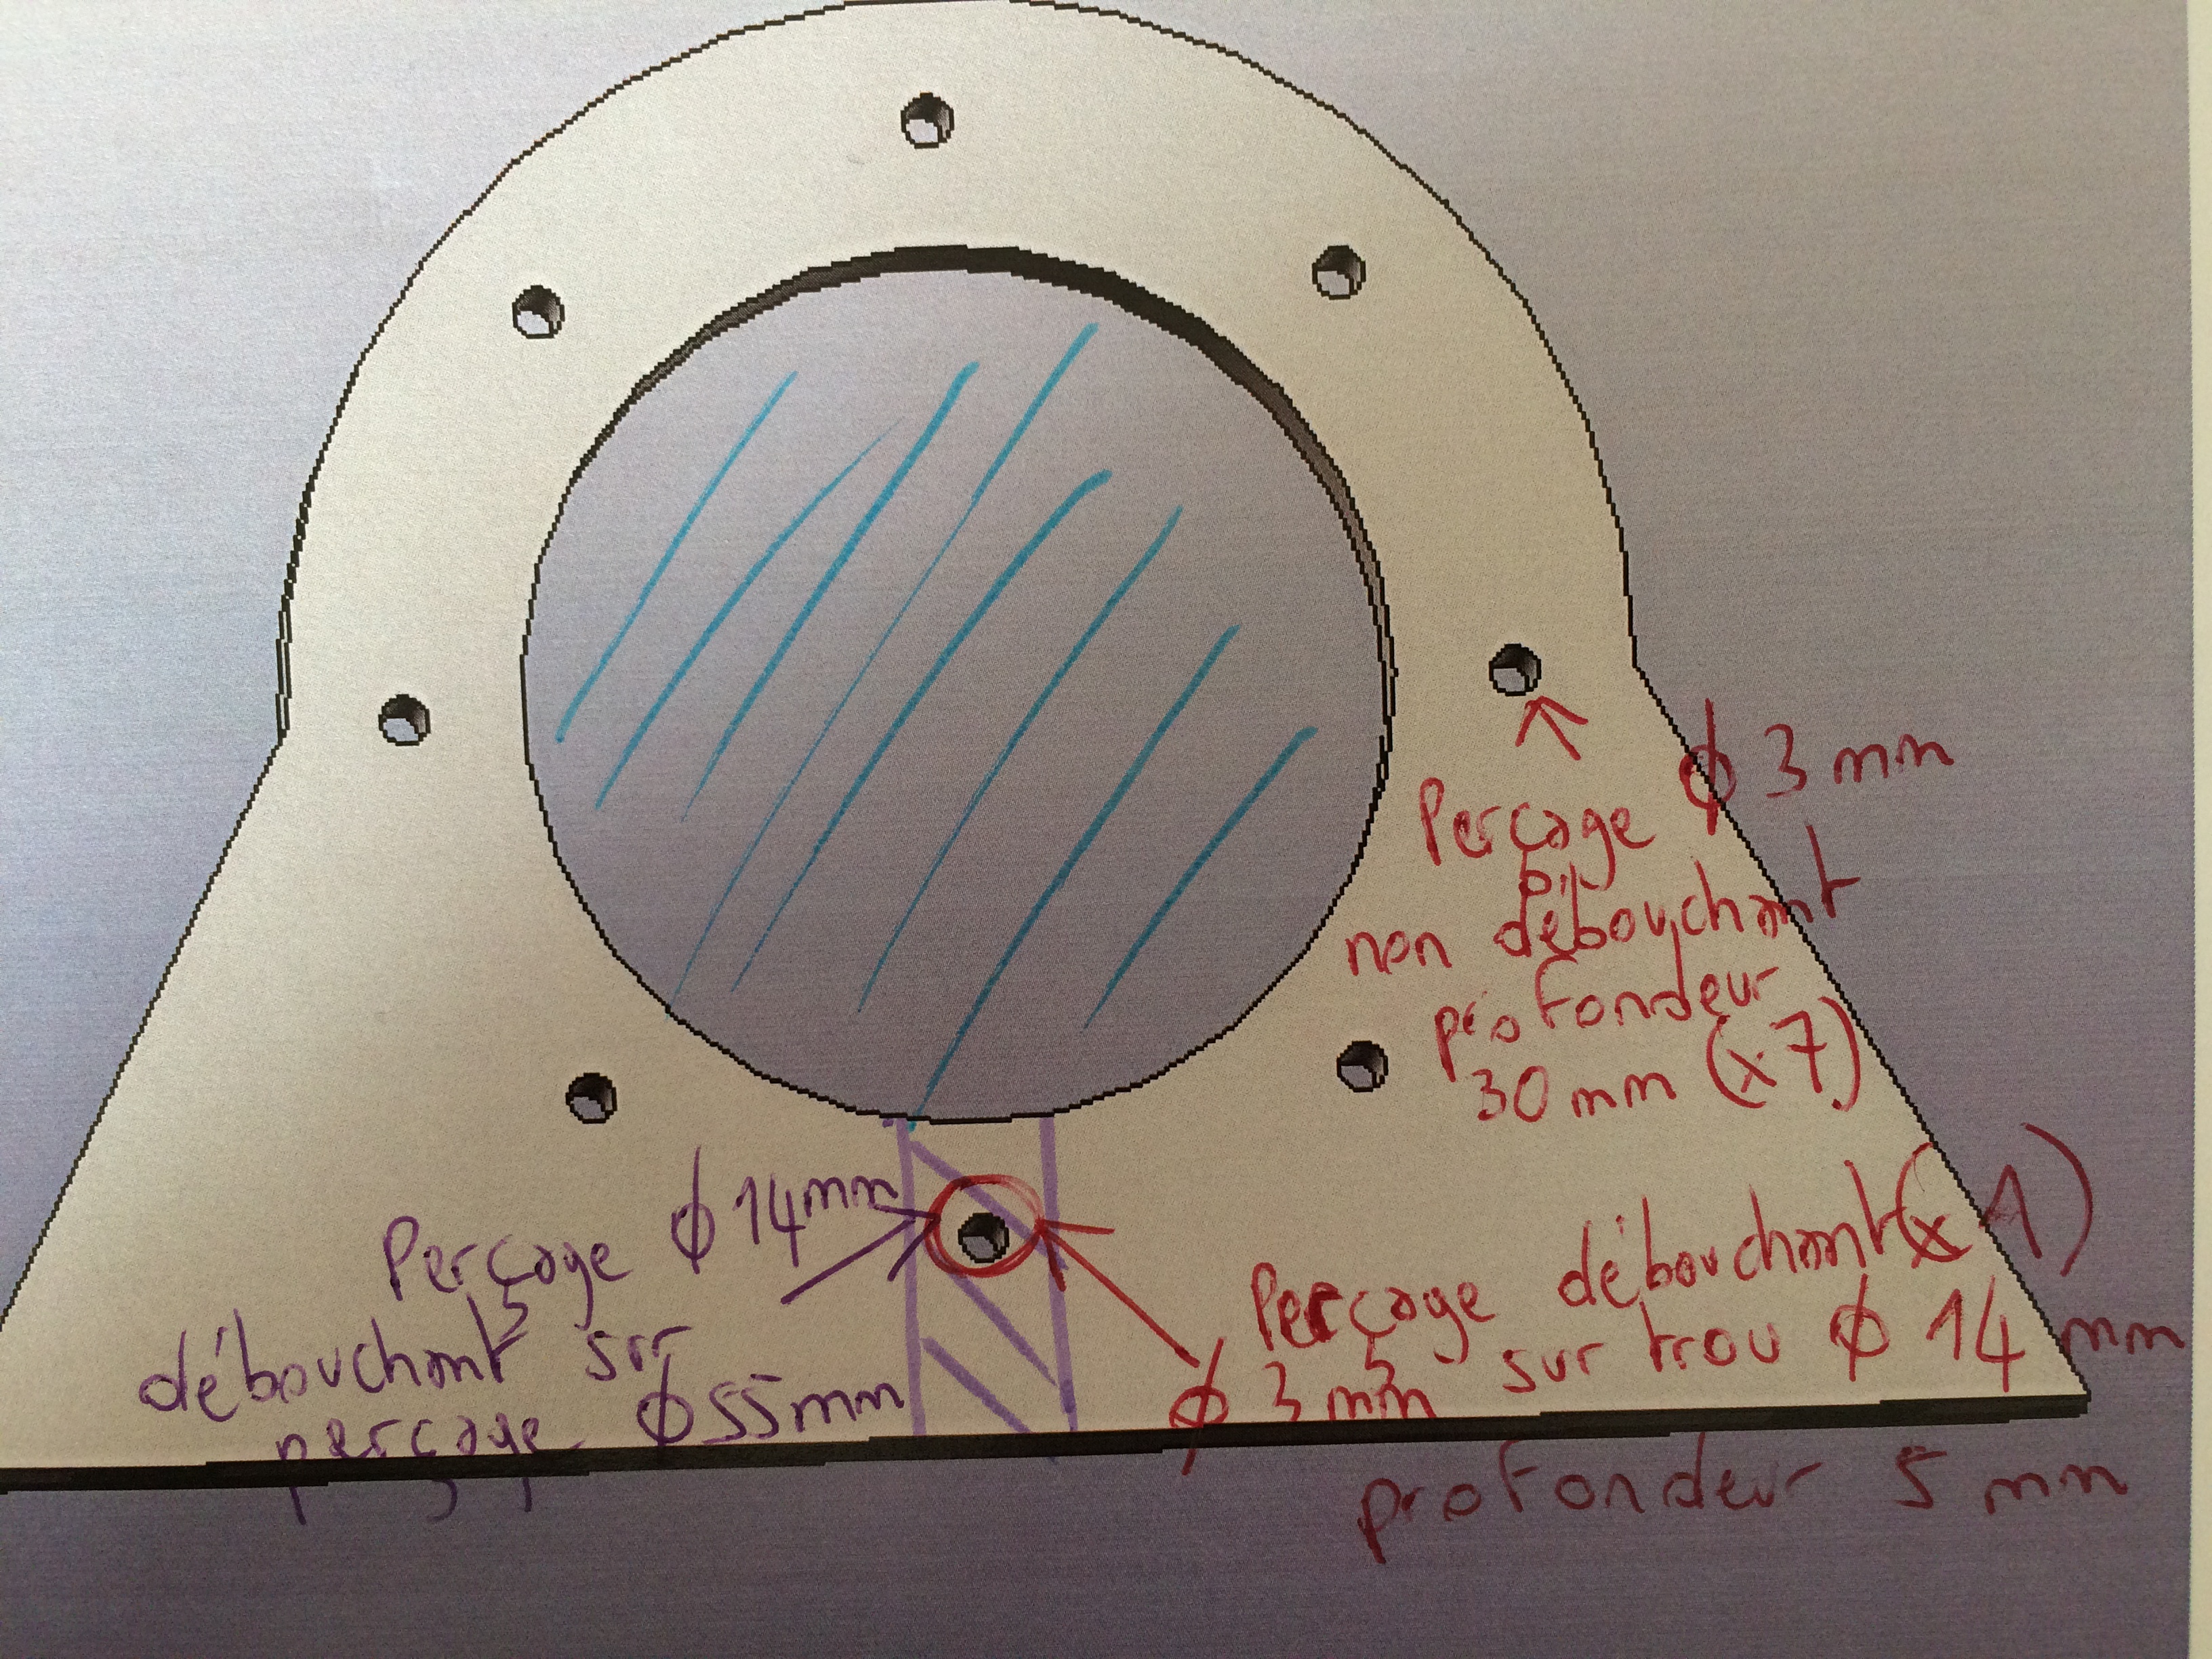 Perçage ϕ 3 mm
non débouchant
profondeur
30 mm (x7)
Perçage ϕ 14 mm
débouchant sur
perçage ϕ 55 mm
Perçage débouchant (x1)
ϕ 3 mm sur trou ϕ 14 mm
profondeur 5 mm